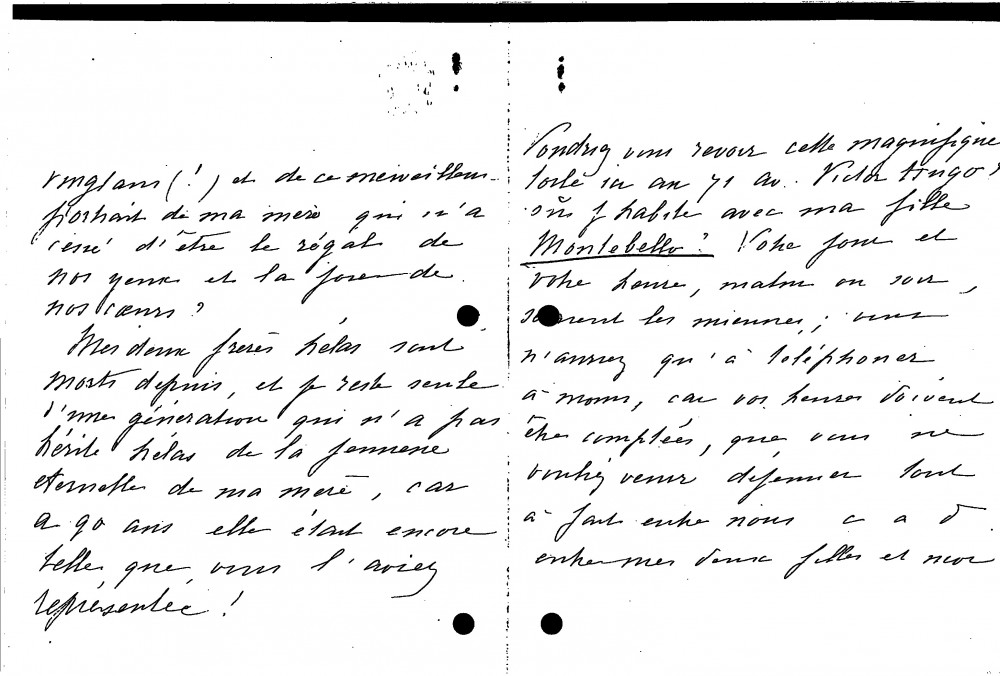 vingt ans (!) et de ce merveilleux
portrait de ma mère qui n'a
cessé d'être le régal de
nos yeux et la joie de
nos cœurs ?
Mes deux frères hélas sont
morts depuis, et je reste seule
d'une génération qui n'a pas
hérité hélas de la jeunesse
éternelle de ma mère, car
a 90 ans elle était encore
telle que vous l'aviez
représentée !
Voudriez vous revoir cette magnifique
toile ici au 71 av. Victor Hugo
où j'habite avec ma fille
Montebello ? Votre jour et
votre heure, matin ou soir,
seront les miennes ; vous
n'aurez qu'à téléphoner
à moins, car vos heures doivent
être comptées, que vous ne
vouliez venir déjeuner tout
à fait entre nous c a d
entre mes deux filles et moi